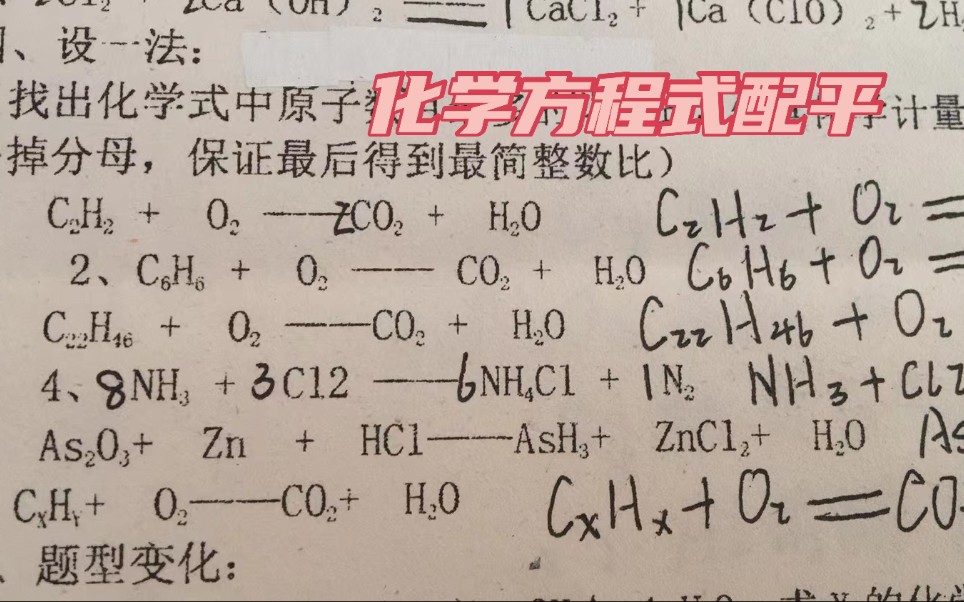 2Ca（OH）₂ ══ 1 CaCl₂ + 1Ca（ClO）₂ + 2H₂
、设一法：
化学方程式配平
找出化学式中原子数 计量
掉分母，保证最后得到最简整数比）
C₂H₂ + O₂ ——2CO₂ + H₂O C₂H₂ + O₂ =
2、C₆H₆ + O₂ —— CO₂ + H₂O C₆H₆ + O₂ =
C₂₂H₄₆ + O₂ ——CO₂ + H₂O C₂₂H₄₆ + O₂
4、8NH₃ + 3Cl2 ——6NH₄Cl + 1N₂ NH₃ + Cl2
As₂O₃+ Zn + HCl——AsH₃+ ZnCl₂+ H₂O As
CₓHᵧ+ O₂——CO₂+ H₂O CₓHₓ + O₂ = CO
、题型变化：